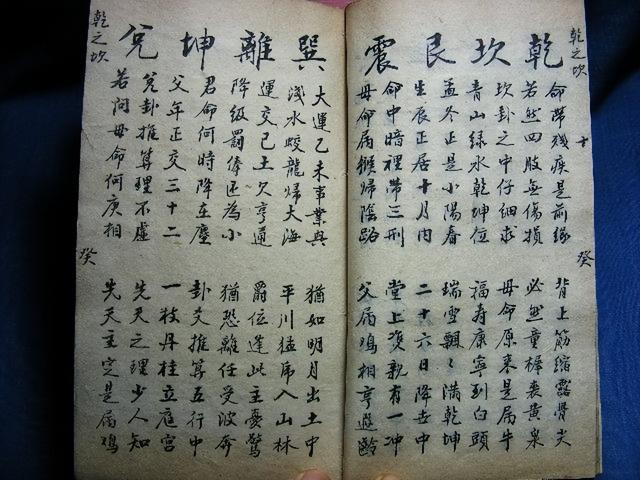 乾坎艮震
乾之坎
十
癸
命帶殘疾是前緣
背上筋縮露骨尖
若然四肢無傷損
必然童裹黃泉
坎卦之中仔細求
母命原來是屬牛
青山綠水乾坤位
福壽康寧到白頭
孟冬正是小陽春
瑞雪飄々滿乾坤
生辰正居十月內
二十六日降世中
命中暗裡帶三刑
堂上雙親有一冲
母命屬猴歸陰路
父屬鳮相亨遐齡
巽離坤兌
大運乙未事業興
猶如明月出土中
淺水蛟龍歸大海
平川猛虎入山林
運交己土欠亨通
爵位逢此主憂驚
降級罰俸還為小
猶恐離任受波奔
君命何時降在塵
卦爻推算五行中
父年正交三十二
一枝丹桂立庭宮
兌卦推算理不虛
先天之理少人知
若問母命何庚相
先天主定是屬鳮
乾之坎
癸